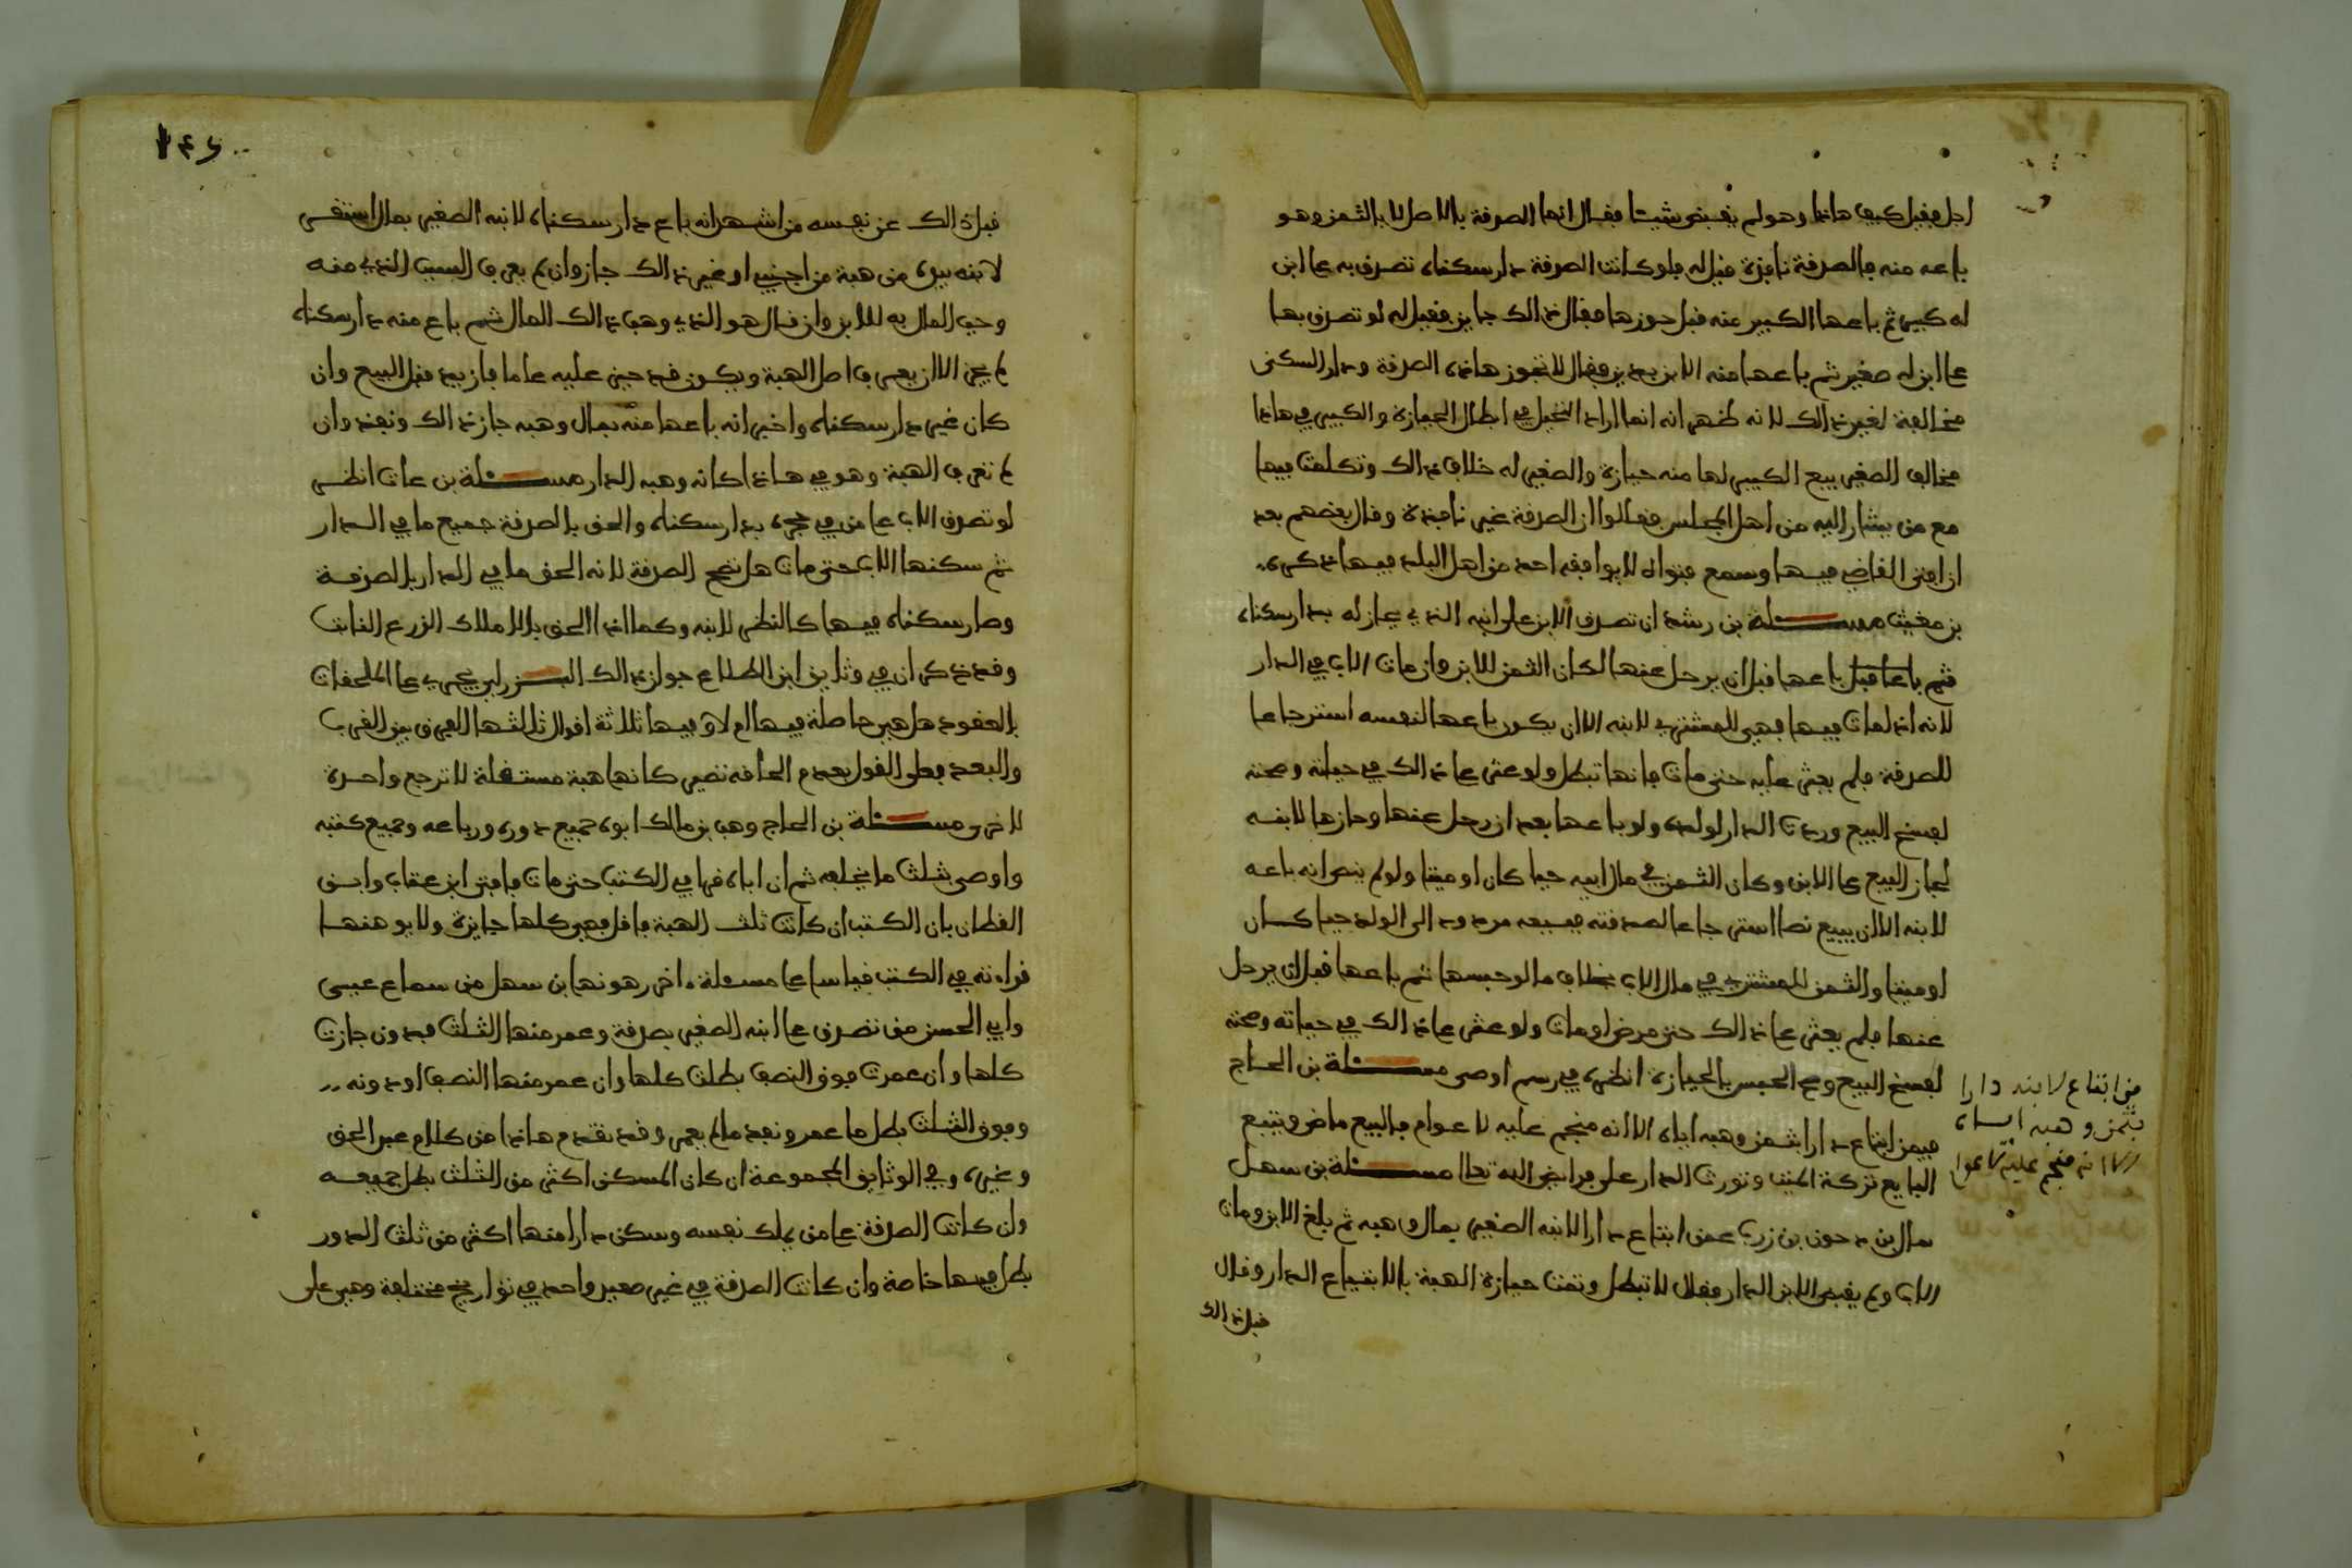 اجل فقيل كيف هاذا وهو لم يقبض شيئا فقال انما الصدقة بالاصل لا بالثمن وهو
باعه منه فالصدقة نافذة فقيل له فلو كانت الصدقة دار سكناه تصدق به على ابن
له كبير ثم باعها الكبير منه قبل حوزها فقال ذالك جايز فقيل له لو تصدق بها
على ابن له صغير ثم باعها منه الابن بعد فقال لا تجوز هاذه الصدقة ودار السكنى
مخالفة لغير ذالك لانه ظهر انه انما اراد التحيل في ابطال الحيازة والكبير في هاذا
مخالف الصغير بيع الكبير لها منه حيازة والصغير له خلاف ذالك وتكلمت فيها
مع من يشار اليه من اهل المجلس فقالوا ان الصدقة غير نافذة وقال بعضهم بعد
ان افتى القاضي فيها وسمع فتواه لا يوافقه احد من اهل البلد فيها ذكره
بن مغيث مسئلة بن رشد ان تصدق الابن على ابنه الذي يحاز له بدار سكناه
ثم باعها قبل ان يرحل عنها لكان الثمن للابن وان مات الاب في الدار
لانه اذا مات فيها فهي للمشتري لابنه الا ان يكون باعها لنفسه استرجاعا
للصدقة فلم يعثر عليه حتى مات فانها تبطل ولو عثر على ذالك في حياته وصحته
لفسخ البيع وردت الدار لولده ولو باعها بعد ان رحل عنها وحازها لابنه
لجاز البيع على الابن وكان الثمن في مال ابيه حيا كان او ميتا ولو لم ينص انه باعه
لابنه الا ان يبيع نصا استرجاعا لصدقته فبيعه مردود الى الولد حيا كان
او ميتا والثمن للمشتري في مال الاب بخلاف ما لو حبسها ثم باعها قبل ان يرحل
عنها فلم يعثر على ذالك حتى مرض او مات ولو عثر على ذالك في حياته وصحته
لفسخ البيع وصح الحبس بالحيازة انظره في رسم اوصى مسئلة بن الحاج
فيمن ابتاع دارا بثمن وهبه اياه الا انه منجم عليه لاعوام فالبيع ماض ويتبع
البايع تركة الميت وتورث الدار على فرايض الله تعالى مسئلة بن سهل
سال بن دحون بن زرب عمن ابتاع دارا لابنه الصغير بمال وهبه ثم بلغ الابن ومات
الاب ولم يقبض الابن الدار فقال لا تبطل وتمت حيازة الهبة بالابتياع الدار وقال
قبل ذالك
من ابتاع لابنه دارا
بثمن وهبه اياه
الا انه منجم عليه لاعوا
١٤٦
قبل ذالك عن نفسه من اشهد انه باع دار سكناه لابنه الصغير بمال استقر
لابنه بيده من هبة من اجنبي او غير ذالك جاز وان لم يعرف السبب الذي منه
وجب المال به للابن وان قال هو الذي وهب ذالك المال ثم باع منه دار سكناه
لم يجز الا ان يعرف اصل الهبة ويكون قد حيز عليه عاما فازيد قبل البيع وان
كان غير دار سكناه واخبر انه باعها منه بمال وهبه جاز ذالك ونفذ وان
لم تعرف الهبة وهو في هاذا كانه وهبه الدار مسئلة بن عات انظر
لو تصدق الاب على من في حجره بدار سكناه والحق بالصدقة جميع ما في الدار
ثم سكنها الاب حتى مات هل تصح الصدقة لانه الحق ما في الدار بالصدقة
وصار سكناه فيها كالنظر لابنه وكما اذا الحق بالاملاك الزرع النابت
وقد ذكر ان في وثايق ابن الطلاع جواز ذالك يجري على الملحقات
بالعقود هل هي حاصلة فيها ام لا وفيها ثلاثة اقوال ثالثها الفرق بين القرب
والبعد فعلى القول بعدم الحاقه تصير كانها هبة مستقلة لا ترجع واحدة
لاخرى مسئلة بن الحاج وهب بن مالك ابوه جميع دوره ورباعه وجميع كتبه
واوصى بثلث ما يخلفه ثم ان اباه قرا في الكتب حتى مات فافتى ابن عتاب وابن
القطان بان الكتب ان كانت ثلث الهبة فاقل فهي كلها جايزة ولا يوهنها
قراءته في الكتب قياسا على مسئلة اخر رهونها بن سهل من سماع عيسى
وابي الحسن من تصدق على ابنه الصغير بصدقة وعمر منها الثلث فدون جازت
كلها وان عمرت فوق النصف بطلت كلها وان عمر منها النصف او دونه
وفوق الثلث بطل ما عمر ونفذ ما لم يعمر وقد تقدم هاذا من كلام عبد الحق
وغيره وفي الوثايق المجموعة ان كان المسكن اكثر من الثلث بطل جميعه
وان كانت الصدقة على من يملك نفسه وسكن دارا منها اكثر من ثلث الدور
بطل فيها خاصة وان كانت الصدقة في غير صفير واحد في تواريخ مختلفة وهي على